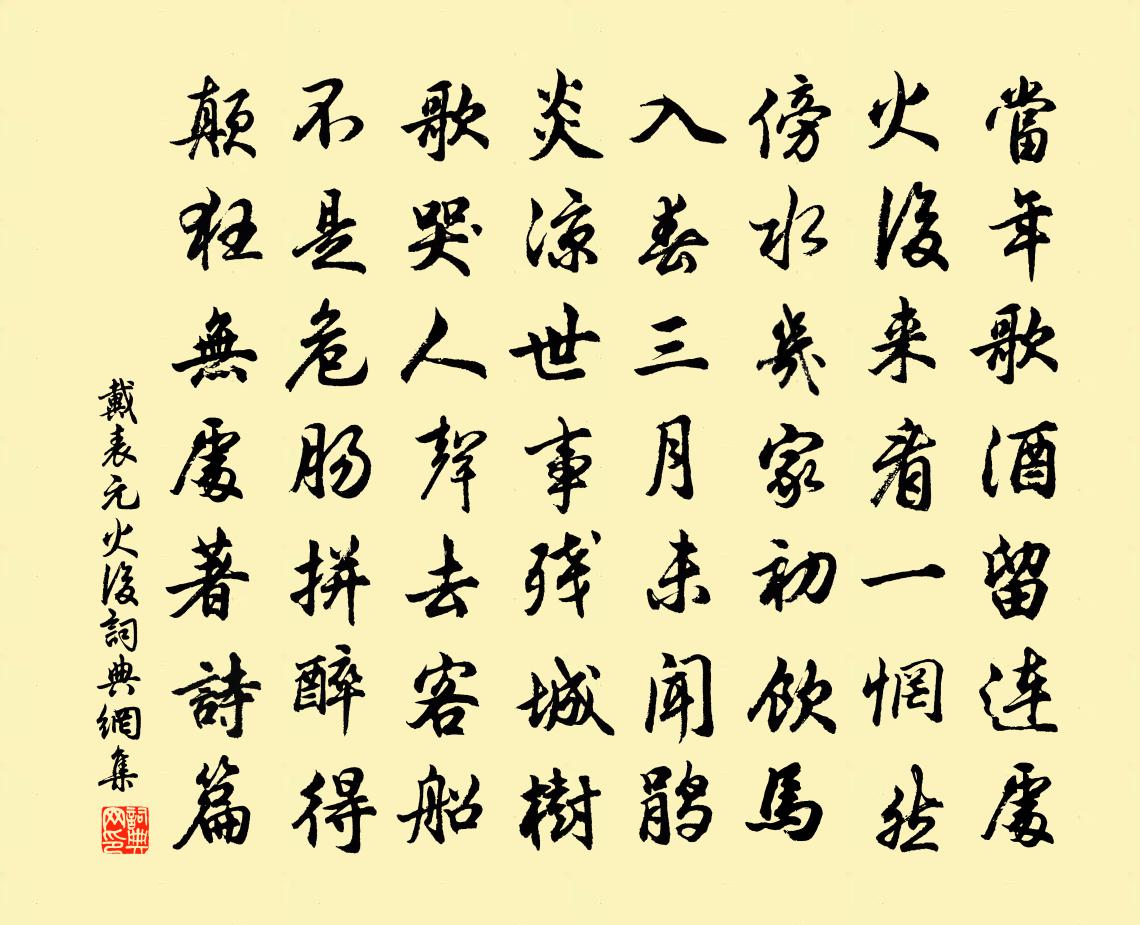 當年歌酒留連處
火後来看一惘然
傍水幾家初飲馬
入春三月未聞鵑
炎涼世事殘城樹
歌哭人聲去客船
不是危腸拼醉得
顛狂無處著詩篇
戴表元火後詞典網集
詞典网印